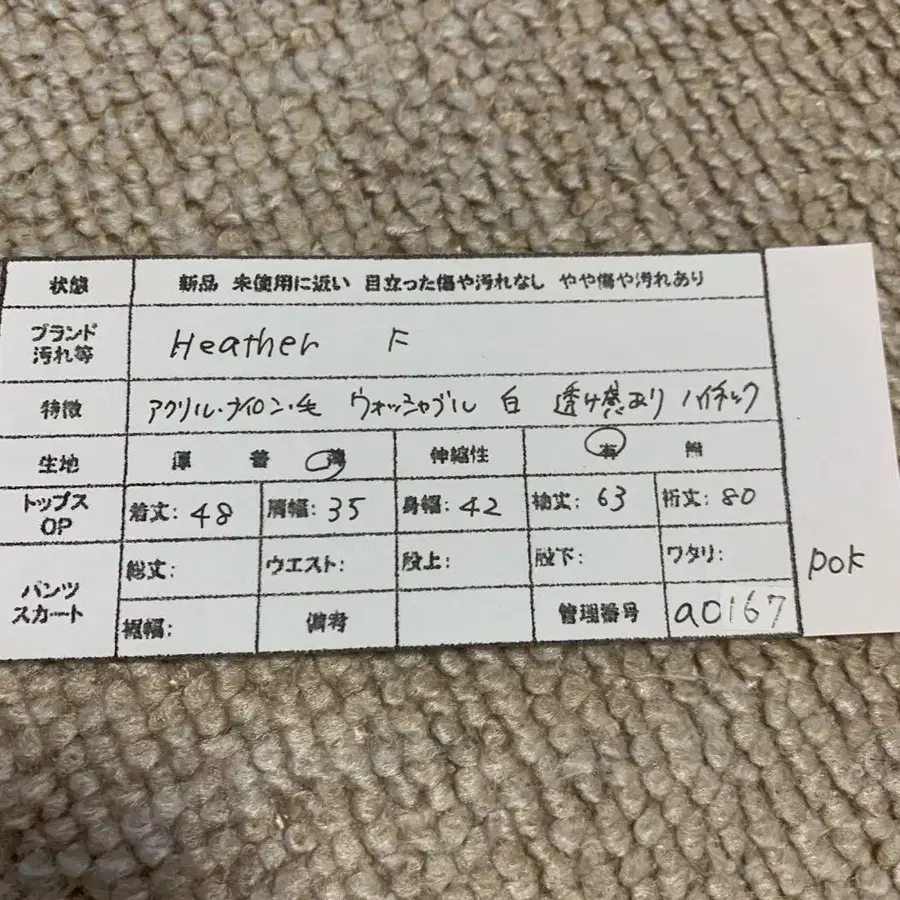 状態 新品 未使用に近い 目立った傷や汚れなし やや傷や汚れあり
ブランド
汚れ等 Heather F
特徴 アクリル・ナイロン・毛 ウォッシャブル 白 透け感あり ハイネック
生地 厚 普 薄 伸縮性 有 無
トップス
OP 着丈: 48 肩幅: 35 身幅: 42 袖丈: 63 裄丈: 80
パンツ
スカート 総丈: ウエスト: 股上: 股下: ワタリ:
裾幅: 備考 管理番号 a0167
pok